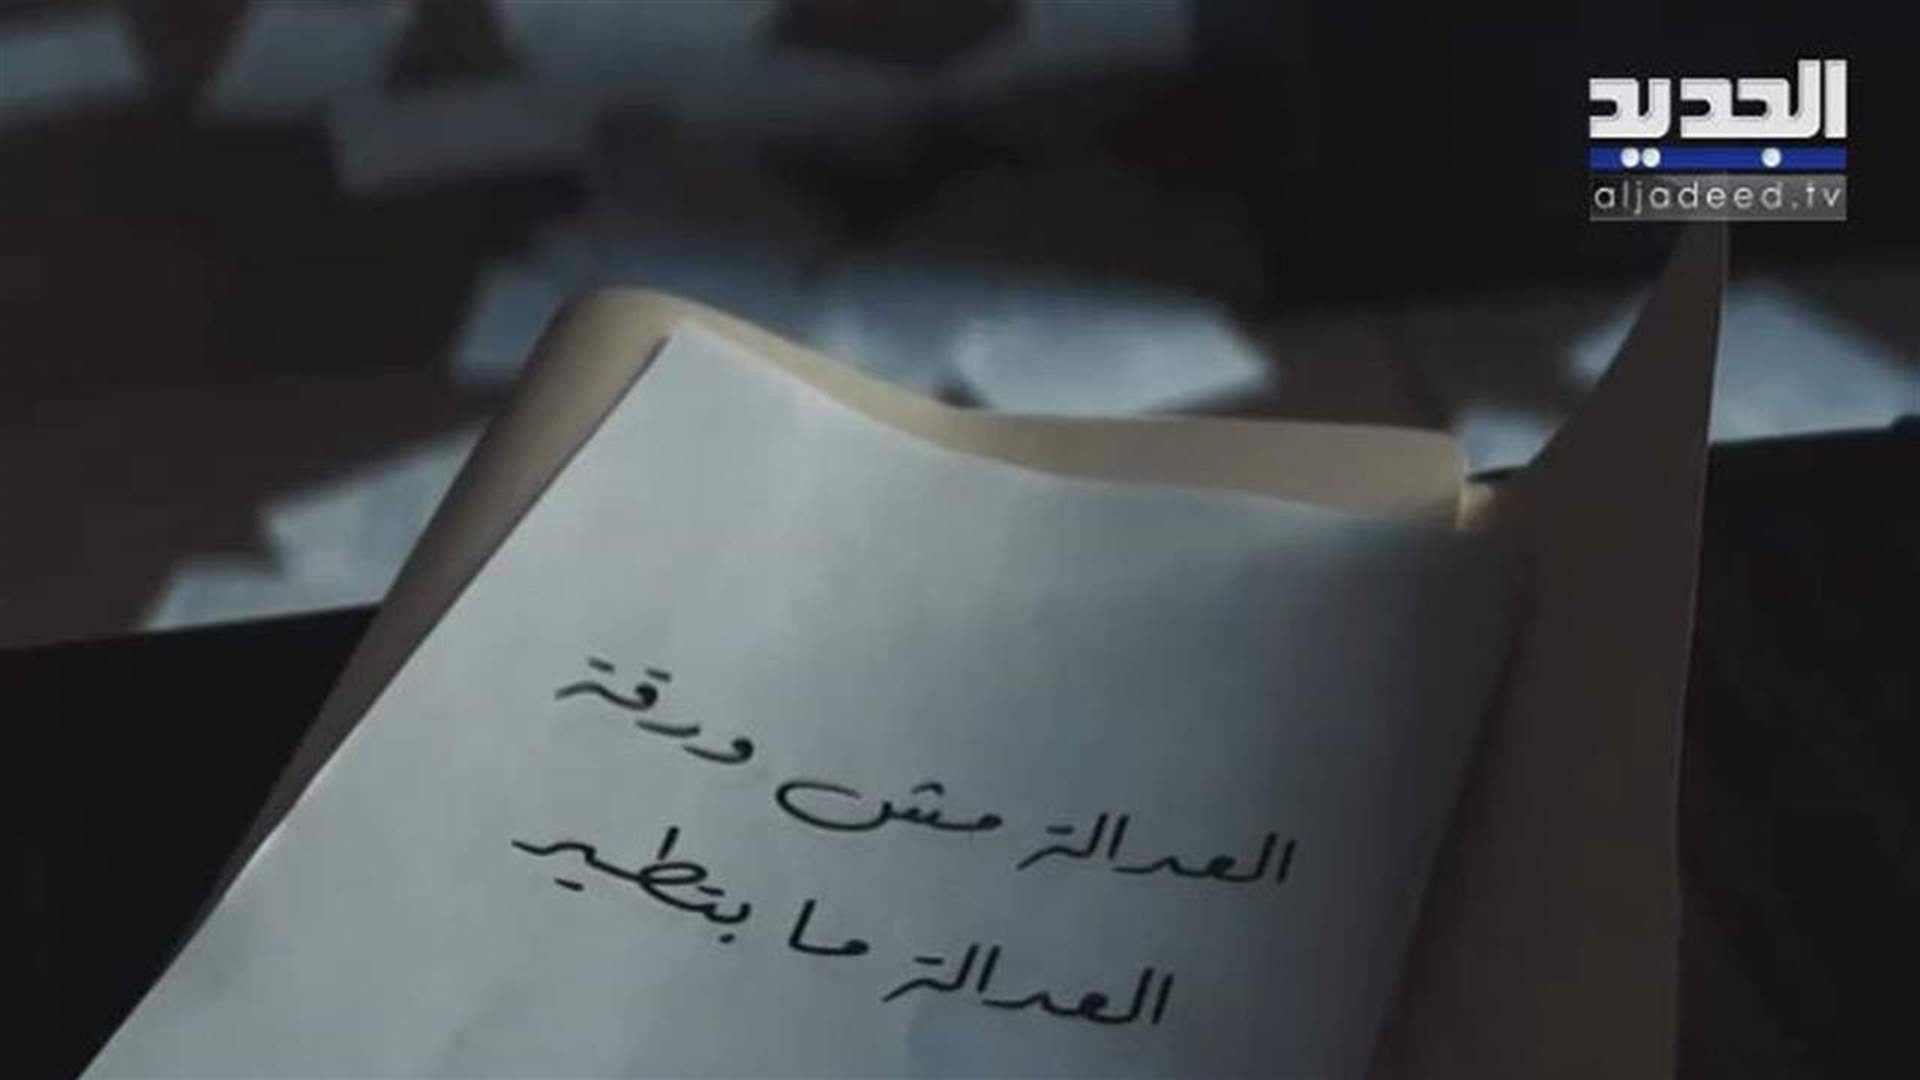 الجديد
aljadeed.tv
العدالة مش ورقة
العدالة ما بتطير